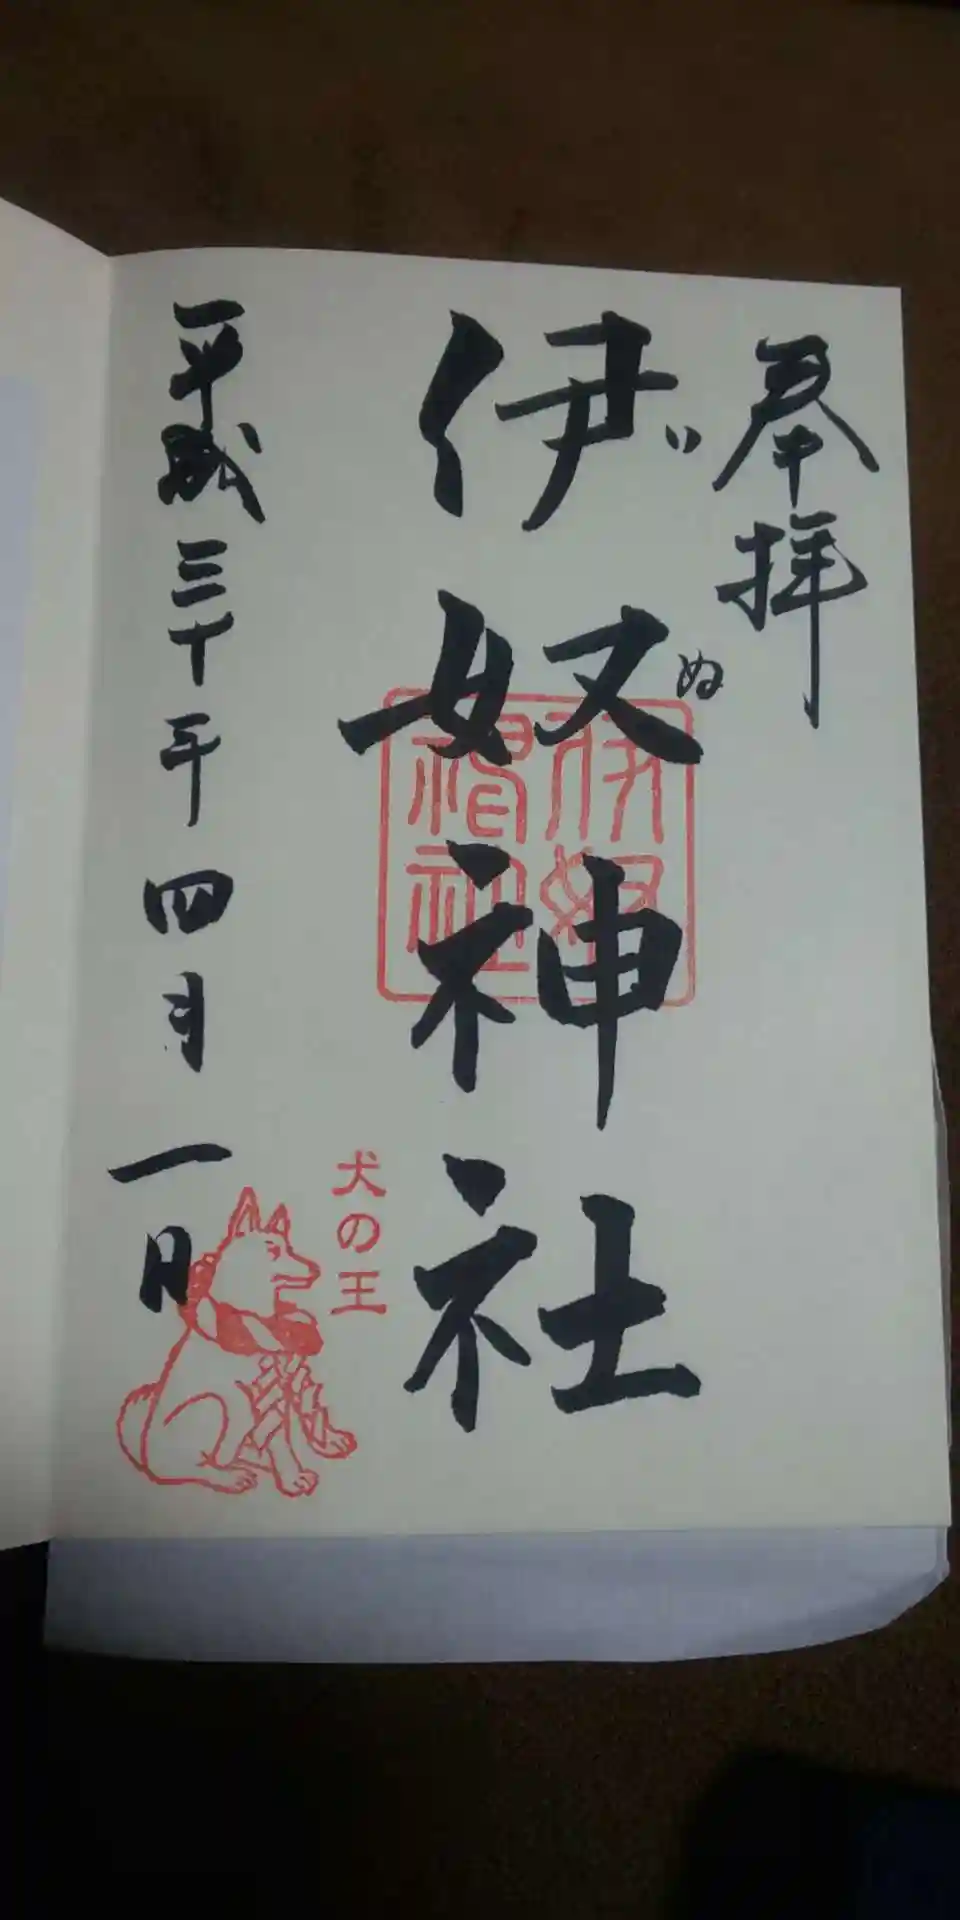 奉拝
伊奴神社
いぬ
伊奴
神社
犬の王
平成三十年四月一日